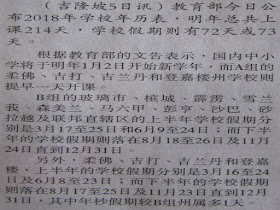 (吉隆坡5日讯)教育部今日公
布2018年学校年历表,明年总共上
课214天,学校假期则有72天或73
天。
根据教育部的文告表示,国内中小
学将于明年1月2日开始新学年,而A组的
柔佛、吉打、吉兰丹和登嘉楼州学校则
提早一天开课。
B组的玻璃市、槟城、霹雳、雪兰
莪、森美兰、马六甲、彭亨、沙巴、砂
拉越及联邦直辖区的上半年学校假期分
别是3月17至25日和6月9至24日;而下半
年的学校假期则落在8月18至26日及11月
24日直到12月31日。
另外,柔佛、吉打、吉兰丹和登嘉
楼,上半年的学校假期分别是3月16至24
日及6月8至23日;而下半年的学校假期
则落在8月17至25日及11月23日直到12月
31日,其中年杪假期较B组州属多1天